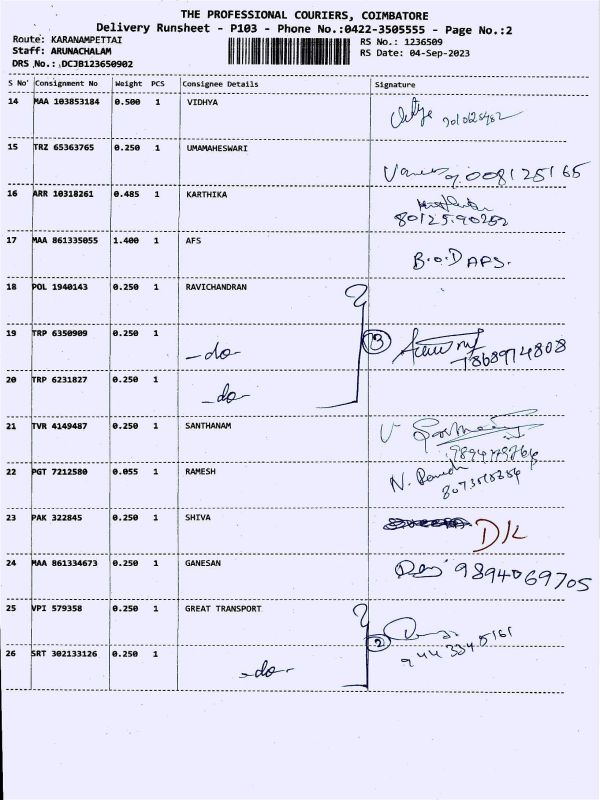 THE PROFESSIONAL COURIERS, COIMBATORE
Delivery Runsheet - P103 - Phone No.:0422-3505555 - Page No.:2
Route: KARANAMPETTAI RS No.: 1236509
Staff: ARUNACHALAM RS Date: 04-Sep-2023
DRS No.: DCJB123650902
S No Consignment No Weight PCS Consignee Details Signature
14 MAA 103853184 0.500 1 VIDHYA
15 TRZ 65363765 0.250 1 UMAMAHESWARI
9.008125165
16 ARR 10318261 0.485 1 KARTHIKA
80125.90252
17 MAA 861335055 1.400 1 AFS B.O.D AFS.
18 POL 1940143 0.250 1 RAVICHANDRAN
19 TRP 6350909 0.250 1 -do- 3
20 TRP 6231827 0.250 1 -do-
21 TVR 4149487 0.250 1 SANTHANAM V
22 PGT 7212580 0.055 1 RAMESH N. Ramesh
23 PAK 322845 0.250 1 SHIVA D/L
24 MAA 861334673 0.250 1 GANESAN 9894069705
25 VPI 579358 0.250 1 GREAT TRANSPORT 2
26 SRT 302133126 0.250 1 -do-